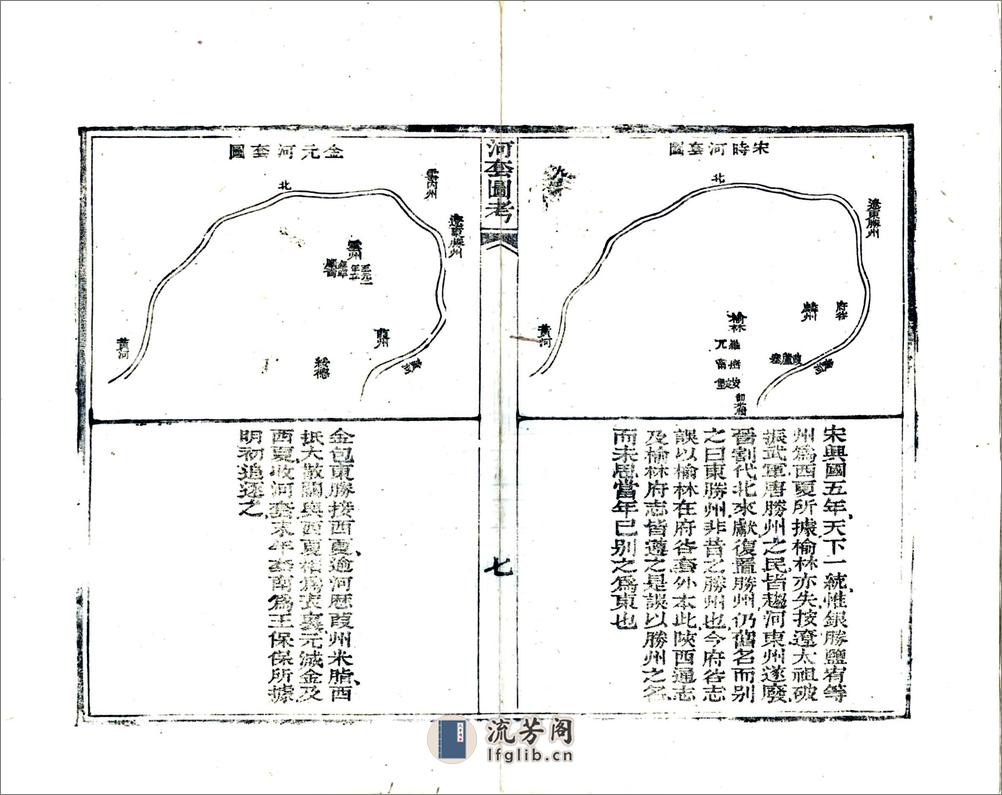 宋時河套圖
北
遼東勝州
府谷
麟州
榆林
黃河
宋興國五年天下一統惟銀勝鹽宥等
州爲西夏所據榆林亦失按遼太祖破
振武軍唐勝州之民皆趨河東州遂廢
晉割代北來獻復置勝州仍舊名而別
之曰東勝州非昔之勝州也今府谷志
誤以榆林在府谷套外本此陝西通志
及榆林府志皆遵之是誤以勝州之名
而未思當年已別之爲東也
河套圖考
七
金元河套圖
北
雲內州
遼東勝州
雲州
葭州
綏德
黃河
金包東勝接西夏逾河歷葭州米脂西
抵大散關與西夏相爲表裏元滅金及
西夏收河套末年套南爲王保保所據
明初追逐之
流芳阁
lfglib.cn